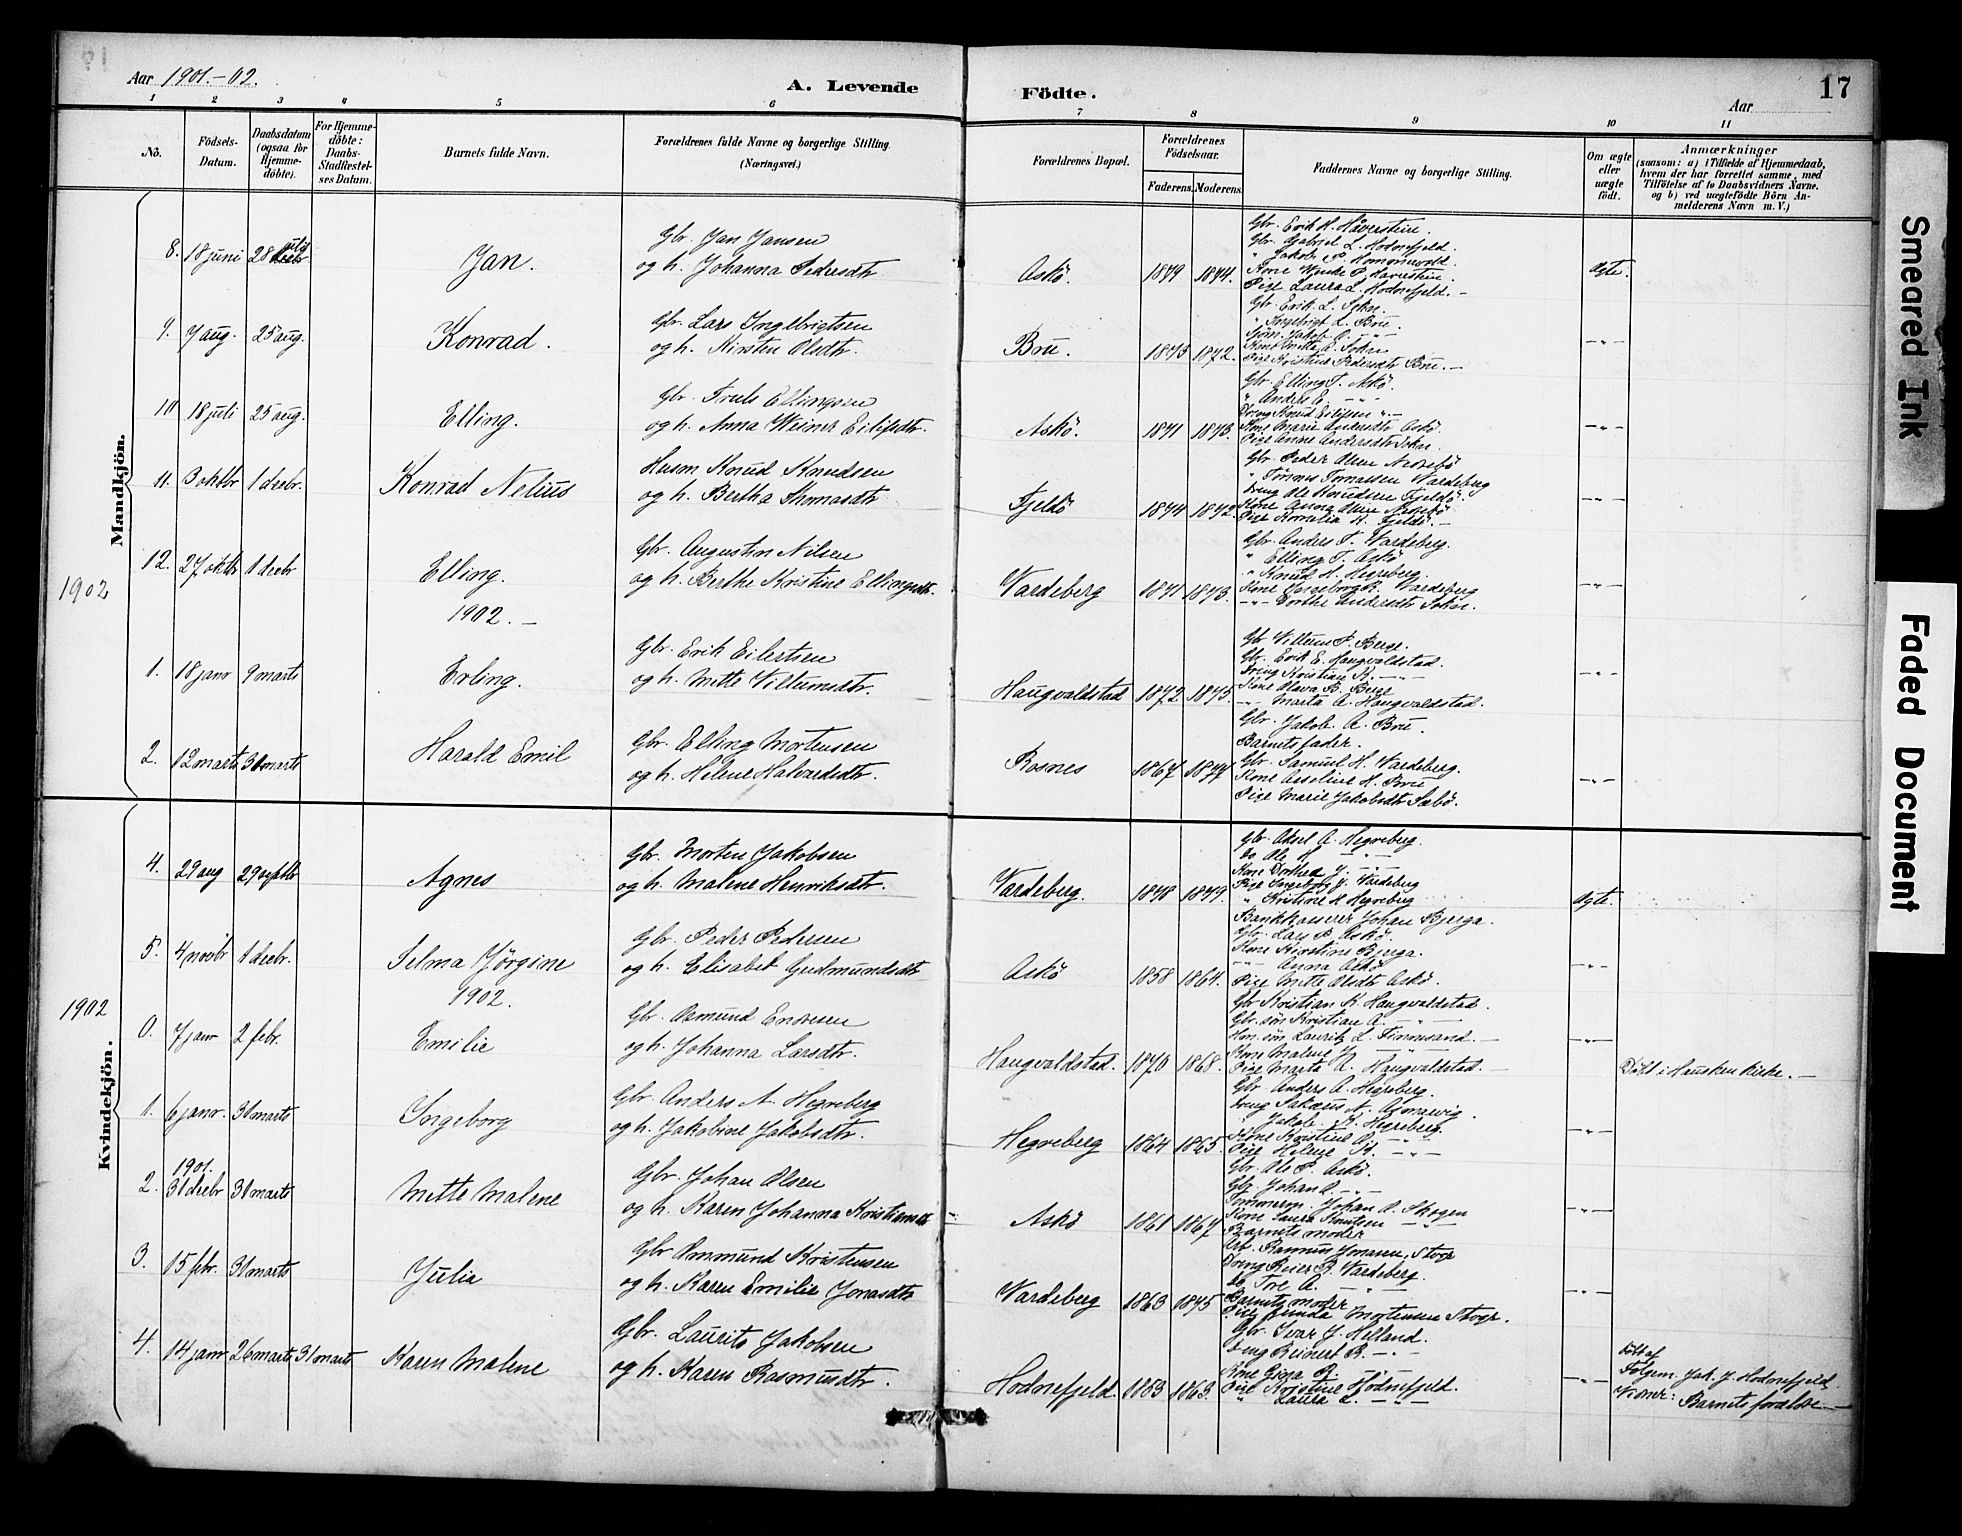 Aar 1901.-02.
A. Levende
Födte.
Aar
17
1 2 3 4 5 6 7 8 9 10 11
No.
Födsels-Datum.
Daabsdatum (ogsaa for Hjemme-döbte).
For Hjemme-döbte: Daabs-Stadfæstel-ses Datum.
Barnets fulde Navn.
Forældrenes fulde Navne og borgerlige Stilling. (Næringsvei.)
Forældrenes Bopæl.
Forældrenes Födselsaar.
Faderens. Moderens.
Faddernes Navne og borgerlige Stilling.
Om ægte eller uægte födt.
Anmærkninger
(saasom: a) i Tilfælde af Hjemmedaab, hvem der har forrettet samme, med Tilföielse af to Daabsvidners Navne. og b) ved uægtefödte Börn An-melderens Navn m. V.)
Mandkjön.
8. 18 juni 28 juli Jan.
Gbr. Jan Jansen
og h. Johanna Pedersdtr.
Askö. 1879 1874.
Gbr. Erik H. Håverstein.
Gbr. Gabriel L. Hodnefjeld.
" Jakob P.
Kone P. Haverstein.
Pige Laura L. Hodnefjeld. -
Ægte.
9. 7 aug. 25 aug. Konrad.
Gbr. Lars Ingebrigtsen
og h. Kirsten Olsdtr.
Bru. 1873 1872.
Gbr. Erik L. Sokn.
" Ingebrigt L. Bru.
Kone Mette A. Sokn
Pige Kristine Pedersdtr Bru. -
-"-
10 18 juli 25 aug. Elling.
Gbr. Truls Ellingsen
og h. Anna Weiner Eilifsdtr.
Askö. 1871 1873.
Gbr. Elling T. Askö.
" Anders E. -"-
Dreng Knud Eilifsen ". -
Kone Marie Andersdtr Askö.
Pige Anne Andersdtr Sokn.
-"-
11. 3 oktbr 1 decbr. Konrad Nelius
Husm Knud Knudsen
og h. Bertha Thomasdtr
Fjeldö 1874 1872.
Gbr. Peder Olsen
" Tönnes Tomassen Vardeberg
Dreng Ole Knudsen Fjeldö.
Kone Anna Olsen
Pige Kornelia K. Fjeldö. -
-"-
12. 27 oktbr 1 decbr Elling.
Gbr. Augustin Nilsen
og h. Berthe Kristine Ellingsdtr.
Vardeberg 1871 1873.
Gbr. Anders T. Vardeberg.
" Elling T. Askö
" Knud H. Hegreberg.
Kone Ingeborg R. Vardeberg
-"- Dorthe Andersdtr Sokn.
-"-
1902
1902. -
1. 18 janr 9 marts Erling.
Gbr. Erik Eilertsen
og h. Mette Viltumsdtr.
Haugvaldstad 1872 1875.
Gbr Viltum P. Berge.
Gbr. Erik E. Haugvaldstad.
Dreng Kristian K. -"-
Kone Olava B. Berge
-"- Marta A. Haugvaldstad.
-"-
2. 12 marts 30 marts Harald Emil
Gbr. Elling Mortensen
og h. Helene Halvardsdtr.
Rosnes 1867 1877
Gbr. Jakob A. Bru.
Barnets fader.
Gbr. Samuel H. Vardeberg.
Kone Asseline H. Bru
Pige Marie Jakobsdtr
-"-
Kvindekjön.
4. 29 aug 29 septbr Agnes
Gbr. Morten Jakobsen
og h. Malene Henriksdtr.
Vardeberg. 1878 1879.
Gbr. Aksel A. Hegreberg.
Do Ole H. -"-
Kone Dorthea J. -"-
Pige Ingeborg J. Vardeberg
" Kristine H. Hegreberg
Ægte.
5. 4 novbr 1 decbr. Selma Jörgine
Gbr. Peder Pedersen
og h. Elisabet Gudmundsdtr
Askö 1858 1864.
Bankkasserer Johan Bjerga.
Gbr. Lars P. Askö.
Kone Kirstine Bjerga.
-"- Anna Askö
Pige Mette Olsdtr Askö.
-"-
1902
1902.
0. 7 janr 2 febr. Emilie
Gbr. Asmund Endresen
og h. Johanna Larsdtr.
Haugvaldstad. 1870 1868.
Gbr Kristian K. Haugvaldstad.
Gbr. sön Kristian A. -"-
Hm. sön Lauritz L. Finnesand.
Kone Malene J. -"-
Pige Marta A. Haugvaldstad.
-"-
Döbt i Hausken kirke. -
1. 6 janr. 30 marts Ingeborg
Gbr. Anders A. Hegreberg
og h. Jakobine Jakobsdtr.
Hegreberg 1864 1865.
Gbr. Anders A. Hegreberg.
Dreng Sakæus A. Asmarvig.
" Jakob K. Hegreberg.
Kone Kristine O. -"-
Pige Helene K. -"-
-"-
1901.
2. 30 decbr 30 marts Mette Malene
Gbr. Johan Olsen
og h. Karen Johanna Kristiansdtr
Askö 1861 1867
Gbr. Ole P. Askö.
Gbr. Johan O. -"-
Tommerm. Johan A. Skogen
Kone Laura Knutsen -"-
Barnets moder
-"-
3. 15 febr. 30 marts Julie
Gbr Ommund Kristensen
og h. Karen Emilie Jonasdtr
Vardeberg 1863 1875
Arb. Rasmus Jonasen,
Dreng Reier R. Vardeberg.
Do Tore A. -"-
Barnets moder
Pige Gunda Mortensen
-"-
4. 14 janr 26 marts 31 marts Karen Malene
Gbr. Laurits Jakobsen
og h. Karen Rasmusdtr.
Hodnefjeld. 1853 1863.
Gbr. Ivar J. Helland.
Dreng Reinert R. -"-
Kone Gina R. -"-
Pige Kristine Hodnefjeld.
" Laura L. -"-
-"-
Döbt af
Jak. J. Hodnefjeld,
Vidner: Barnets forældre. -
Smeared Ink
Faded Document